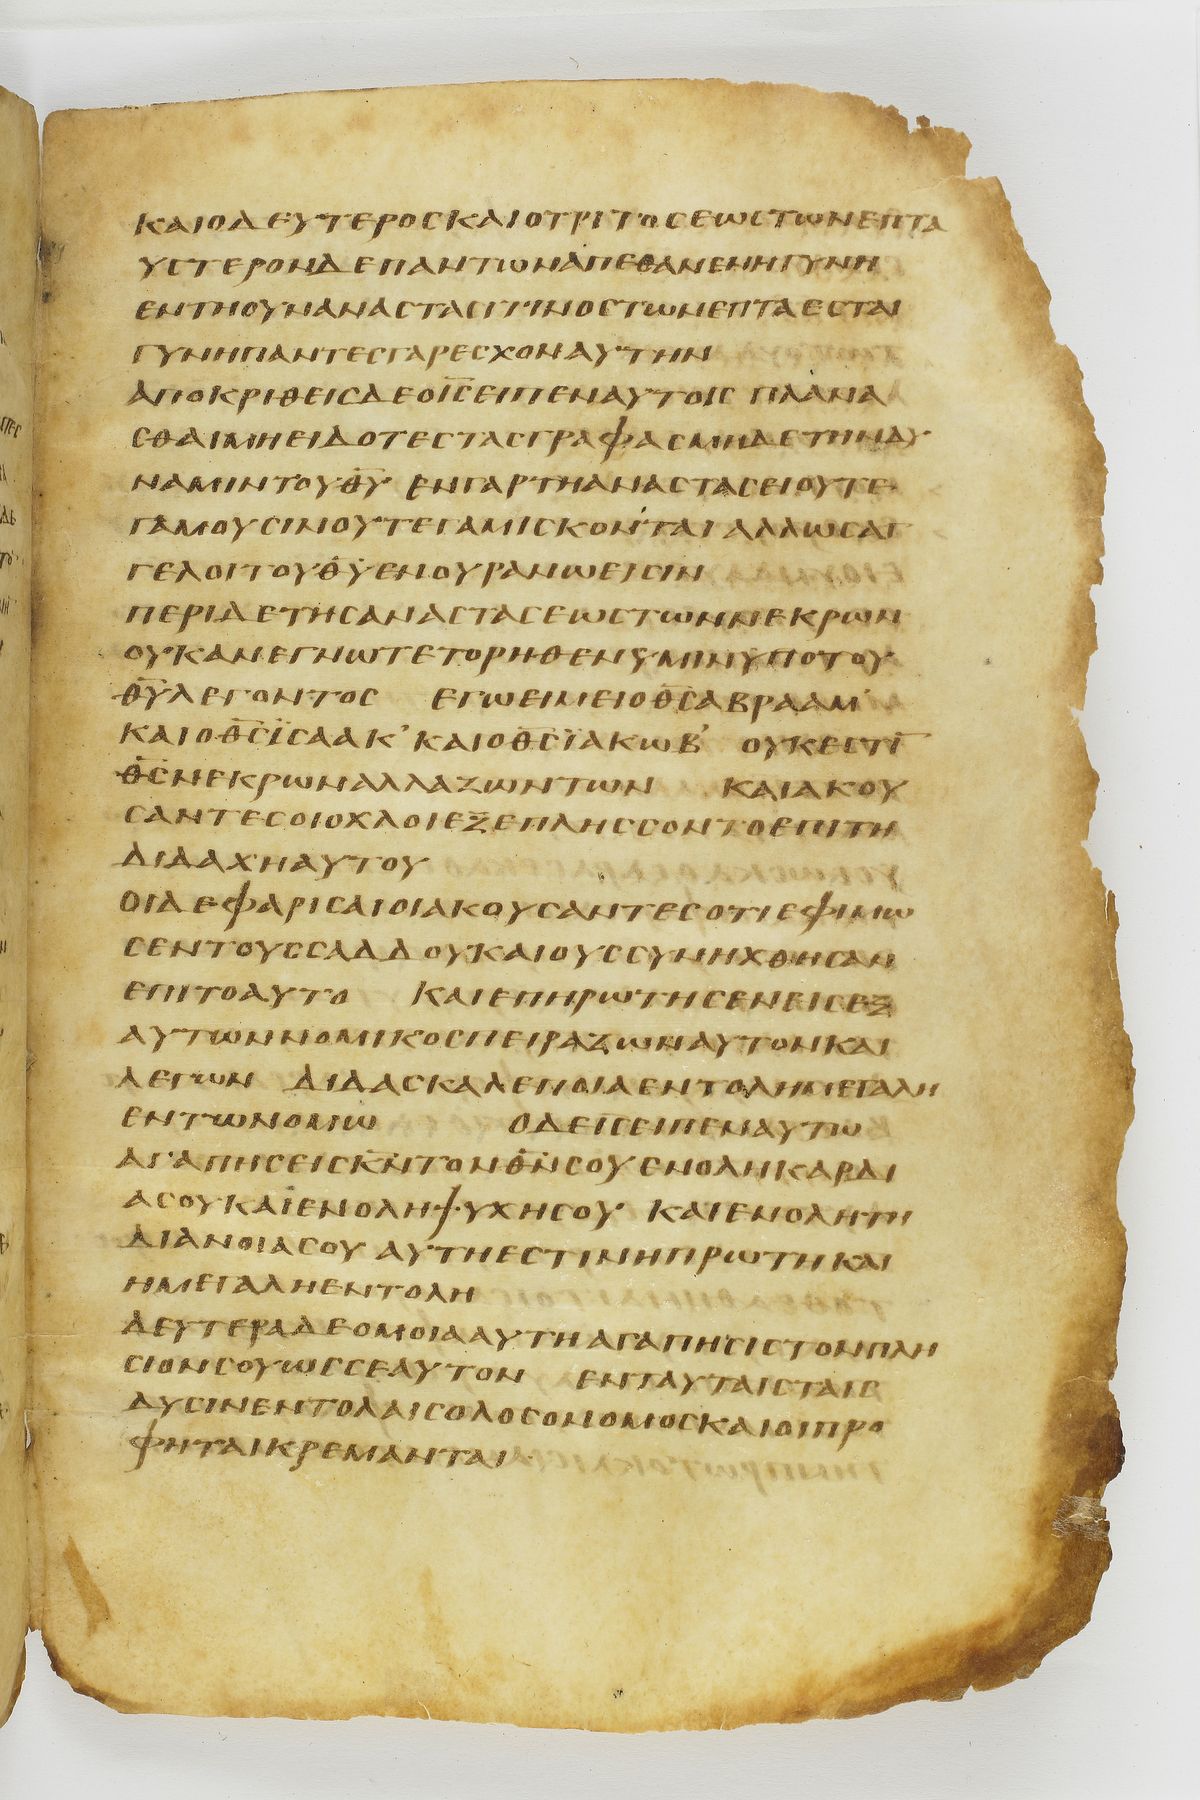 ΚΑΙΟΔΕΥΤΕΡΟΣΚΑΙΟΤΡΙΤΟΣΕΩΣΤΩΝΕΠΤΑ
ΥΣΤΕΡΟΝΔΕΠΑΝΤΩΝΑΠΕΘΑΝΕΝΗΓΥΝΗ
ΕΝΤΗΟΥΝΑΝΑΣΤΑΣΙΤΙΝΟΣΤΩΝΕΠΤΑΕΣΤΑΙ
ΓΥΝΗΠΑΝΤΕΣΓΑΡΕΣΧΟΝΑΥΤΗΝ
ΑΠΟΚΡΙΘΕΙΣΔΕΟΙ̅Σ̅ΕΙΠΕΝΑΥΤΟΙΣ ΠΛΑΝΑ
ΣΘΑΙΜΗΕΙΔΟΤΕΣΤΑΣΓΡΑΦΑΣΜΗΔΕΤΗΝΔΥ
ΝΑΜΙΝΤΟΥΘ̅Υ̅ ΕΝΓΑΡΤΗΑΝΑΣΤΑΣΕΙΟΥΤΕ
ΓΑΜΟΥΣΙΝΟΥΤΕΓΑΜΙΣΚΟΝΤΑΙ ΑΛΛΩΣΑΓ
ΓΕΛΟΙΤΟΥΘ̅Υ̅ΕΝΟΥΡΑΝΩΕΙΣΙΝ
ΠΕΡΙΔΕΤΗΣΑΝΑΣΤΑΣΕΩΣΤΩΝΝΕΚΡΩΝ
ΟΥΚΑΝΕΓΝΩΤΕΤΟΡΗΘΕΝΥΜΙΝΥΠΟΤΟΥ
Θ̅Υ̅ΛΕΓΟΝΤΟΣ ΕΓΩΕΙΜΕΙΟΘ̅Σ̅ΑΒΡΑΑΜ’
ΚΑΙΟΘ̅Σ̅ΪΣΑΑΚ’ΚΑΙΟΘ̅Σ̅ΪΑΚΩΒ’ ΟΥΚΕΣΤΙ̅
Θ̅Σ̅ΝΕΚΡΩΝΑΛΛΑΖΩΝΤΩΝ ΚΑΙΑΚΟΥ
ΣΑΝΤΕΣΟΙΟΧΛΟΙΕΞΕΠΛΗΣΣΟΝΤΟΕΠΙΤΗ
ΔΙΔΑΧΗΑΥΤΟΥ
ΟΙΔΕΦΑΡΙΣΑΙΟΙΑΚΟΥΣΑΝΤΕΣΟΤΙΕΦΙΜΩ
ΣΕΝΤΟΥΣΣΑΔΔΟΥΚΑΙΟΥΣΣΥΝΗΧΘΗΣΑΝ
ΕΠΙΤΟΑΥΤΟ ΚΑΙΕΠΗΡΩΤΗΣΕΝΕΙΣΕΞ
ΑΥΤΩΝΝΟΜΙΚΟΣΠΕΙΡΑΖΩΝΑΥΤΟΝΚΑΙ
ΛΕΓΩΝ ΔΙΔΑΣΚΑΛΕΠΟΙΑΕΝΤΟΛΗΜΕΓΑΛΗ
ΕΝΤΩΝΟΜΩ ΟΔΕΙ̅Σ̅ΕΙΠΕΝΑΥΤΩ
ΑΓΑΠΗΣΕΙΣΚ̅Ν̅ΤΟΝΘ̅Ν̅ΣΟΥΕΝΟΛΗΚΑΡΔΙ
ΑΣΟΥΚΑΙΕΝΟΛΗΨΥΧΗΣΟΥ ΚΑΙΕΝΟΛΗΤΗ
ΔΙΑΝΟΙΑΣΟΥ ΑΥΤΗΕΣΤΙΝΗΠΡΩΤΗΚΑΙ
ΗΜΕΓΑΛΗΕΝΤΟΛΗ
ΔΕΥΤΕΡΑΔΕΟΜΟΙΑΑΥΤΗΑΓΑΠΗΣΙΣΤΟΝΠΛΗ
ΣΙΟΝΣΟΥΩΣΣΕΑΥΤΟΝ ΕΝΤΑΥΤΑΙΣΤΑΙΣ
ΔΥΣΙΝΕΝΤΟΛΑΙΣΟΛΟΣΟΝΟΜΟΣΚΑΙΟΙΠΡΟ
ΦΗΤΑΙΚΡΕΜΑΝΤΑΙ